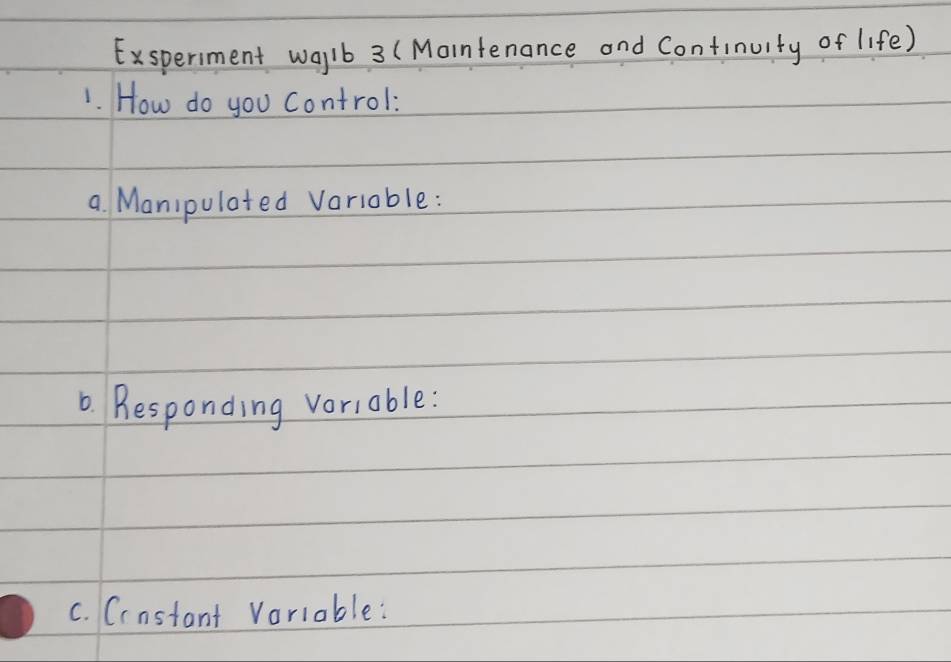 Exsperiment wajib 3 (Maintenance and Continuity of life)
1. How do you Control:
a. Manipulated Variable:
b. Responding variable:
c. Constant Variable: